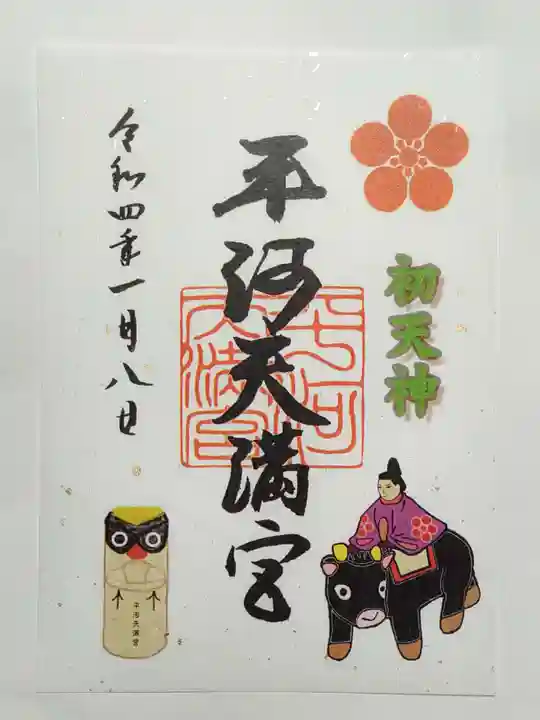 初天神
平河天満宮
平河天満宮
令和四年一月八日
平河天満宮